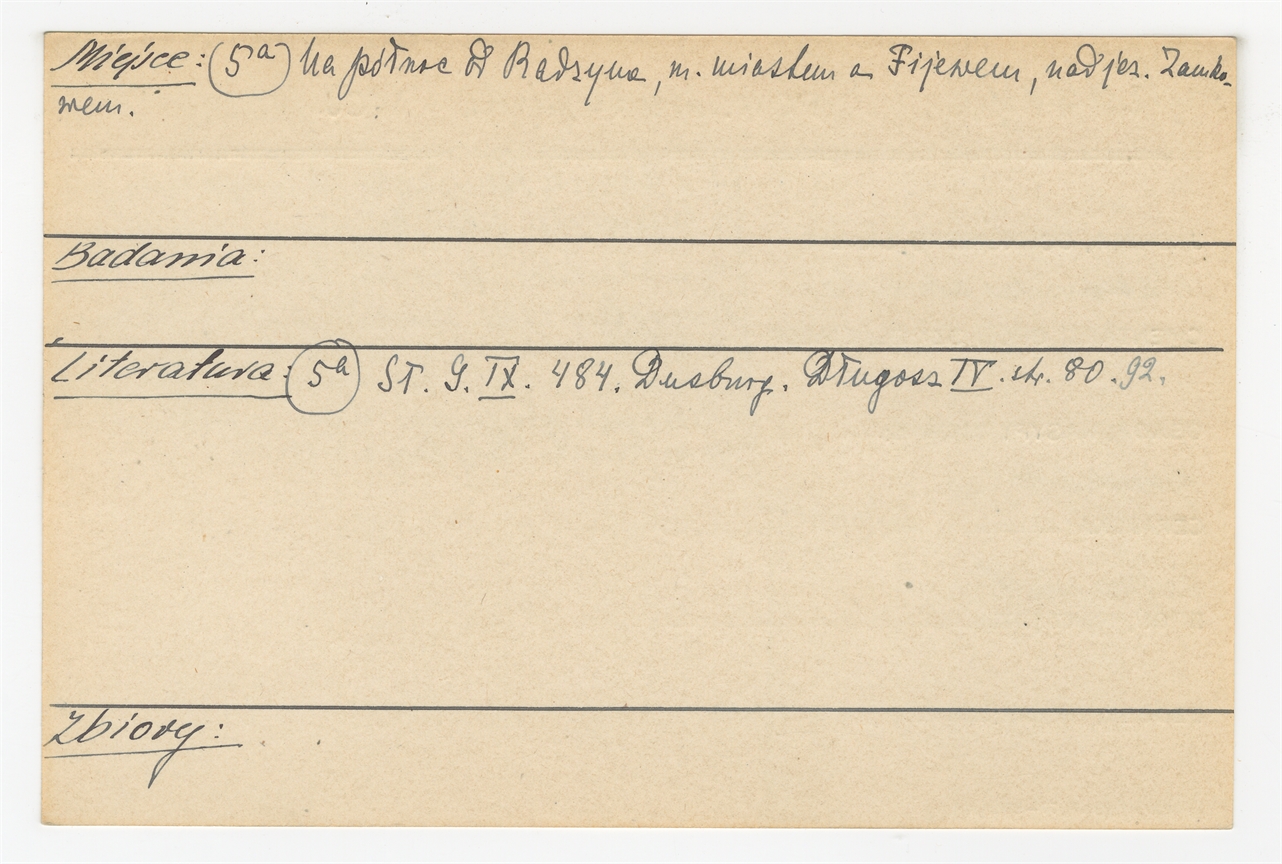 Miejsce: (5a) Na północ od Radzyna, m. miastem a Fijewem, nad jez. Zamko-
wem.
Badania:
Literatura: (5a) St. G. IX. 484. Dusburg. Długosz IV. str. 80. 92.
Zbiory: